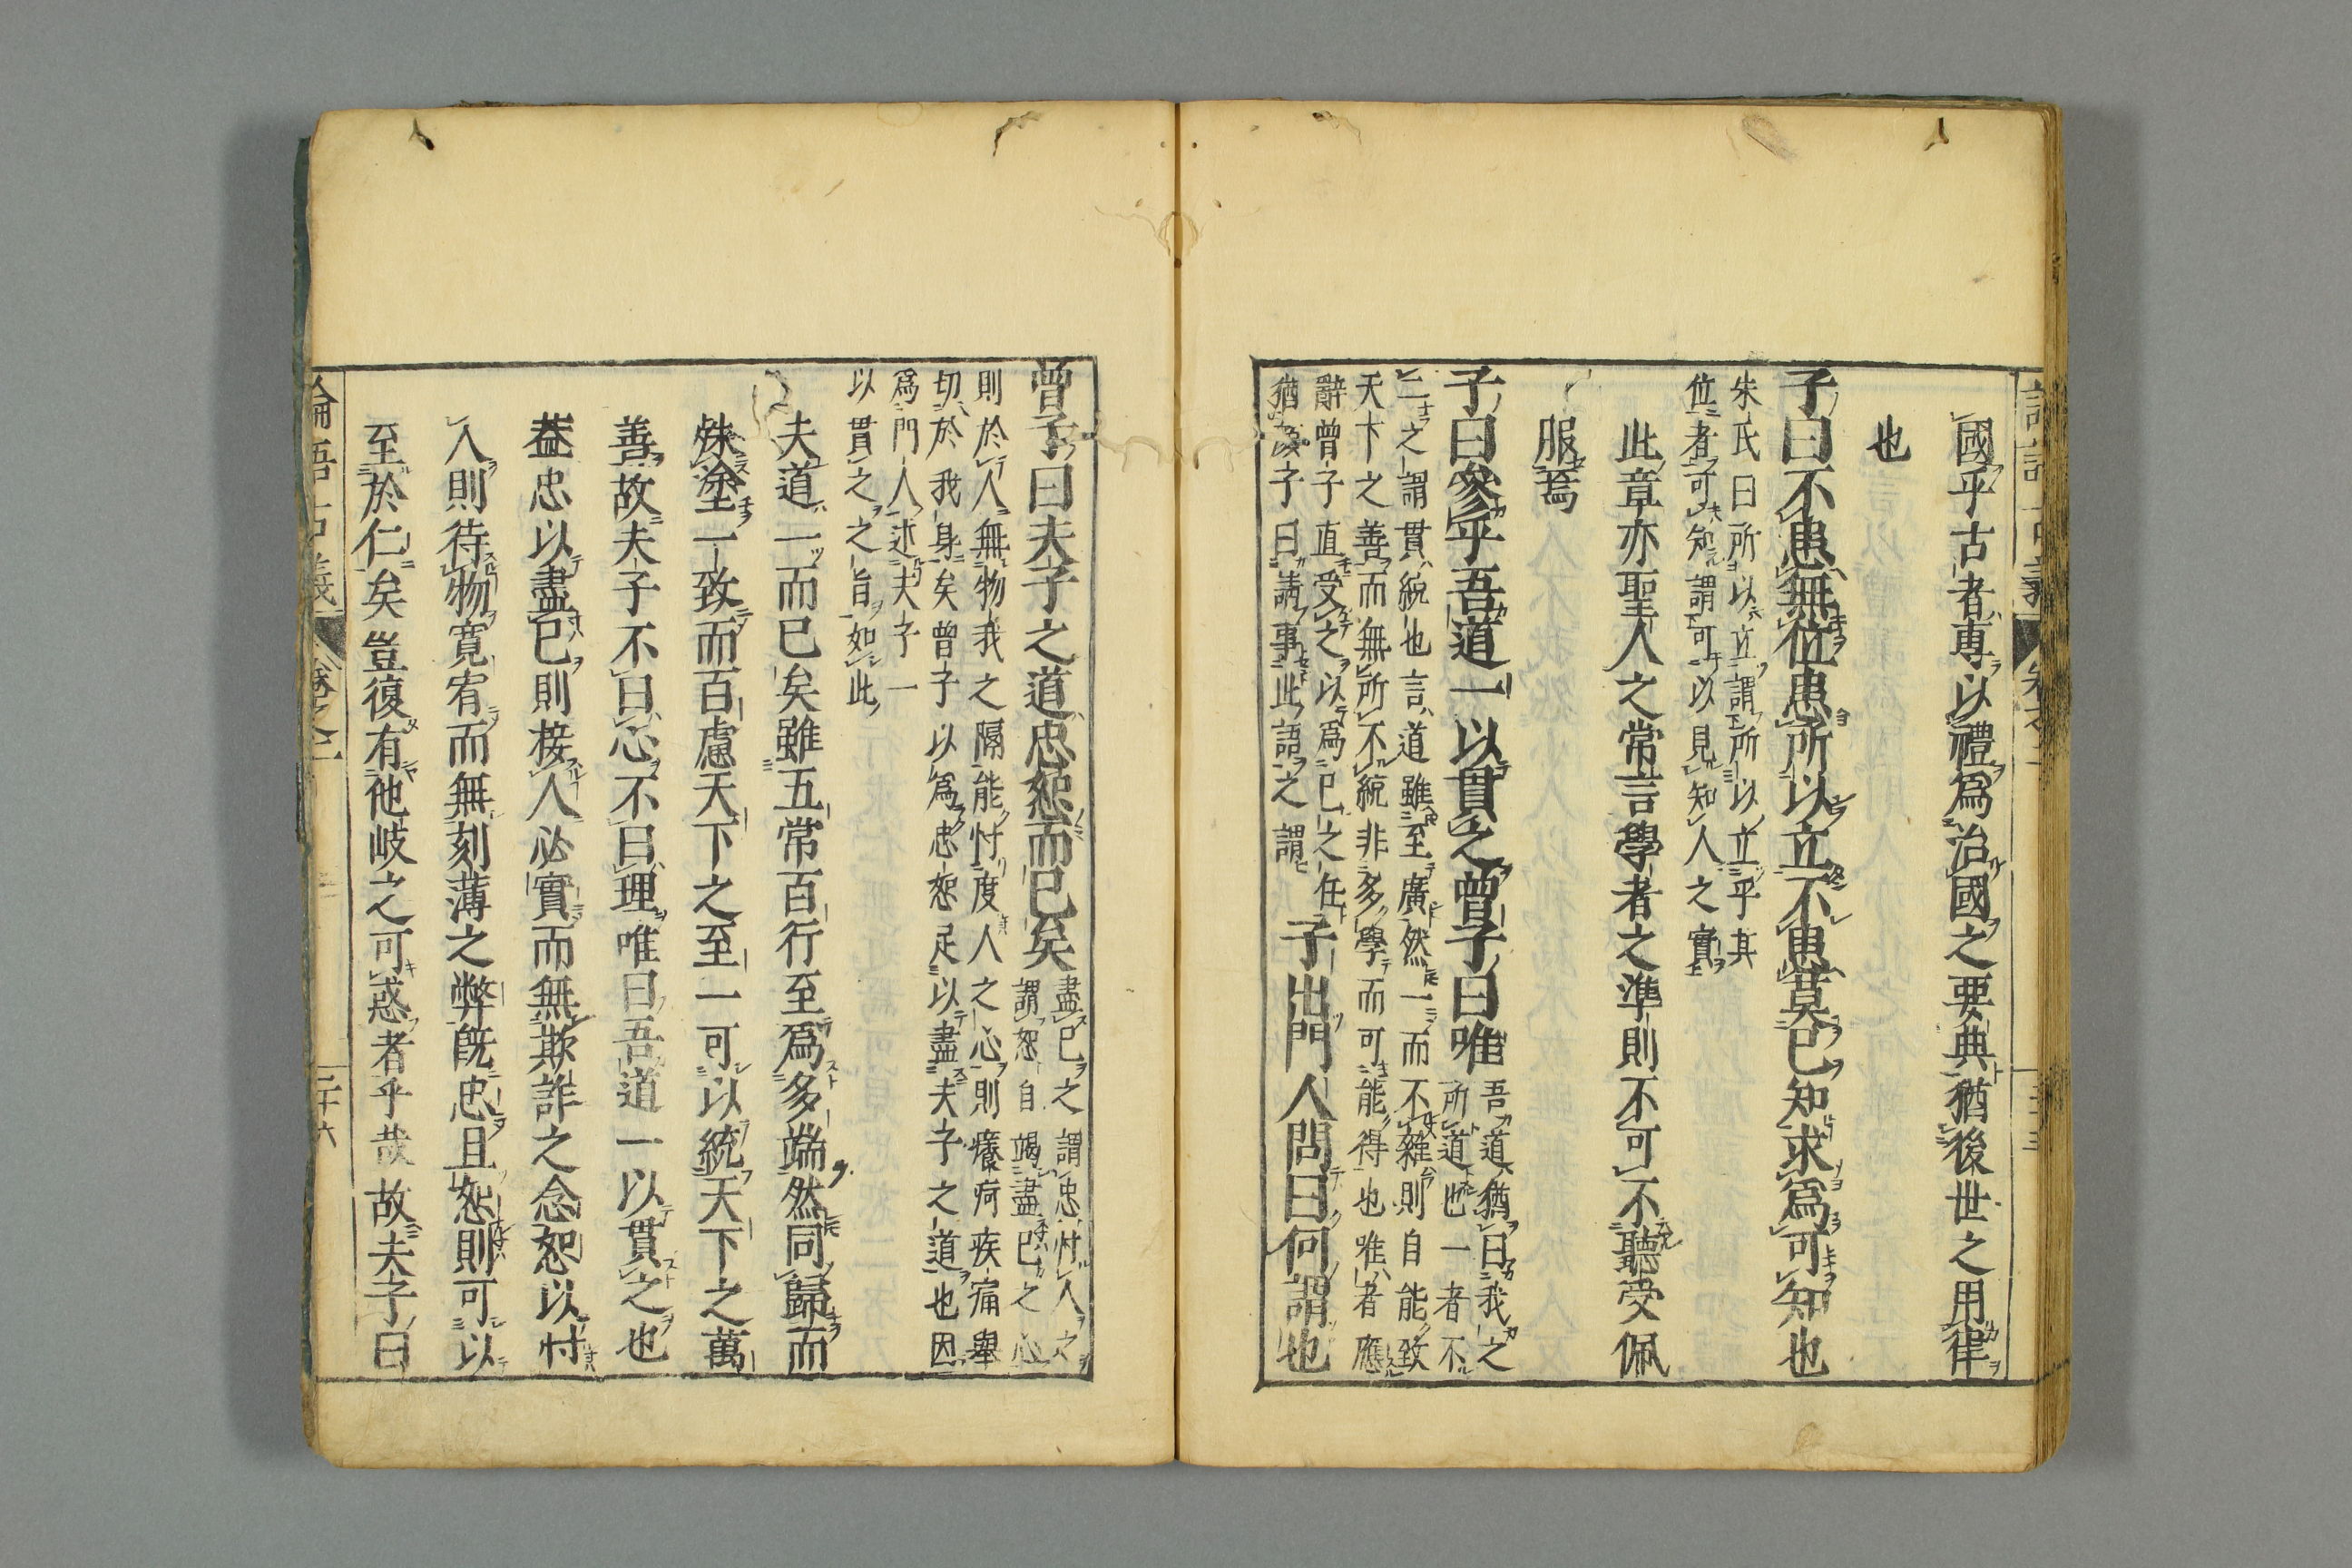 國乎古者專以禮爲治國之要典猶後世之用律
也
子曰不患無位患所以立不患莫己知求爲可知也
朱氏曰所以立謂所以立乎其
位者可知謂可以見知人之實
此章亦聖人之常言學者之準則不可不聽受佩
服焉
子曰參乎吾道一以貫之曾子曰唯
吾道猶曰我之
所道也一者不
二之謂貫統也言道雖至廣然一而不雜則自能致
天下之善而無所不統非多學而可能得也唯者應
辭曾子直受之以爲己之任
猶顏子曰請事此語之謂
子出門人問曰何謂也
曾子曰夫子之道忠恕而已矣
盡己之謂忠忖人之
謂恕自竭盡己之心
則於人無物我之隔能忖度人之心則癢疴疾痛舉
切於我身矣曾子以爲忠恕足以盡夫子之道也因
爲門人述夫子一
以貫之之旨如此
夫道一而已矣雖五常百行至爲多端然同歸而
殊塗一致而百慮天下之至一可以統天下之萬
善故夫子不曰心不曰理唯曰吾道一以貫之也
葢忠以盡己則接人必實而無欺詐之念恕以忖
人則待物寬宥而無刻薄之弊旣忠且恕則可以
至於仁矣豈復有他岐之可惑者乎哉故夫子曰
論語古義 卷之二 二十六